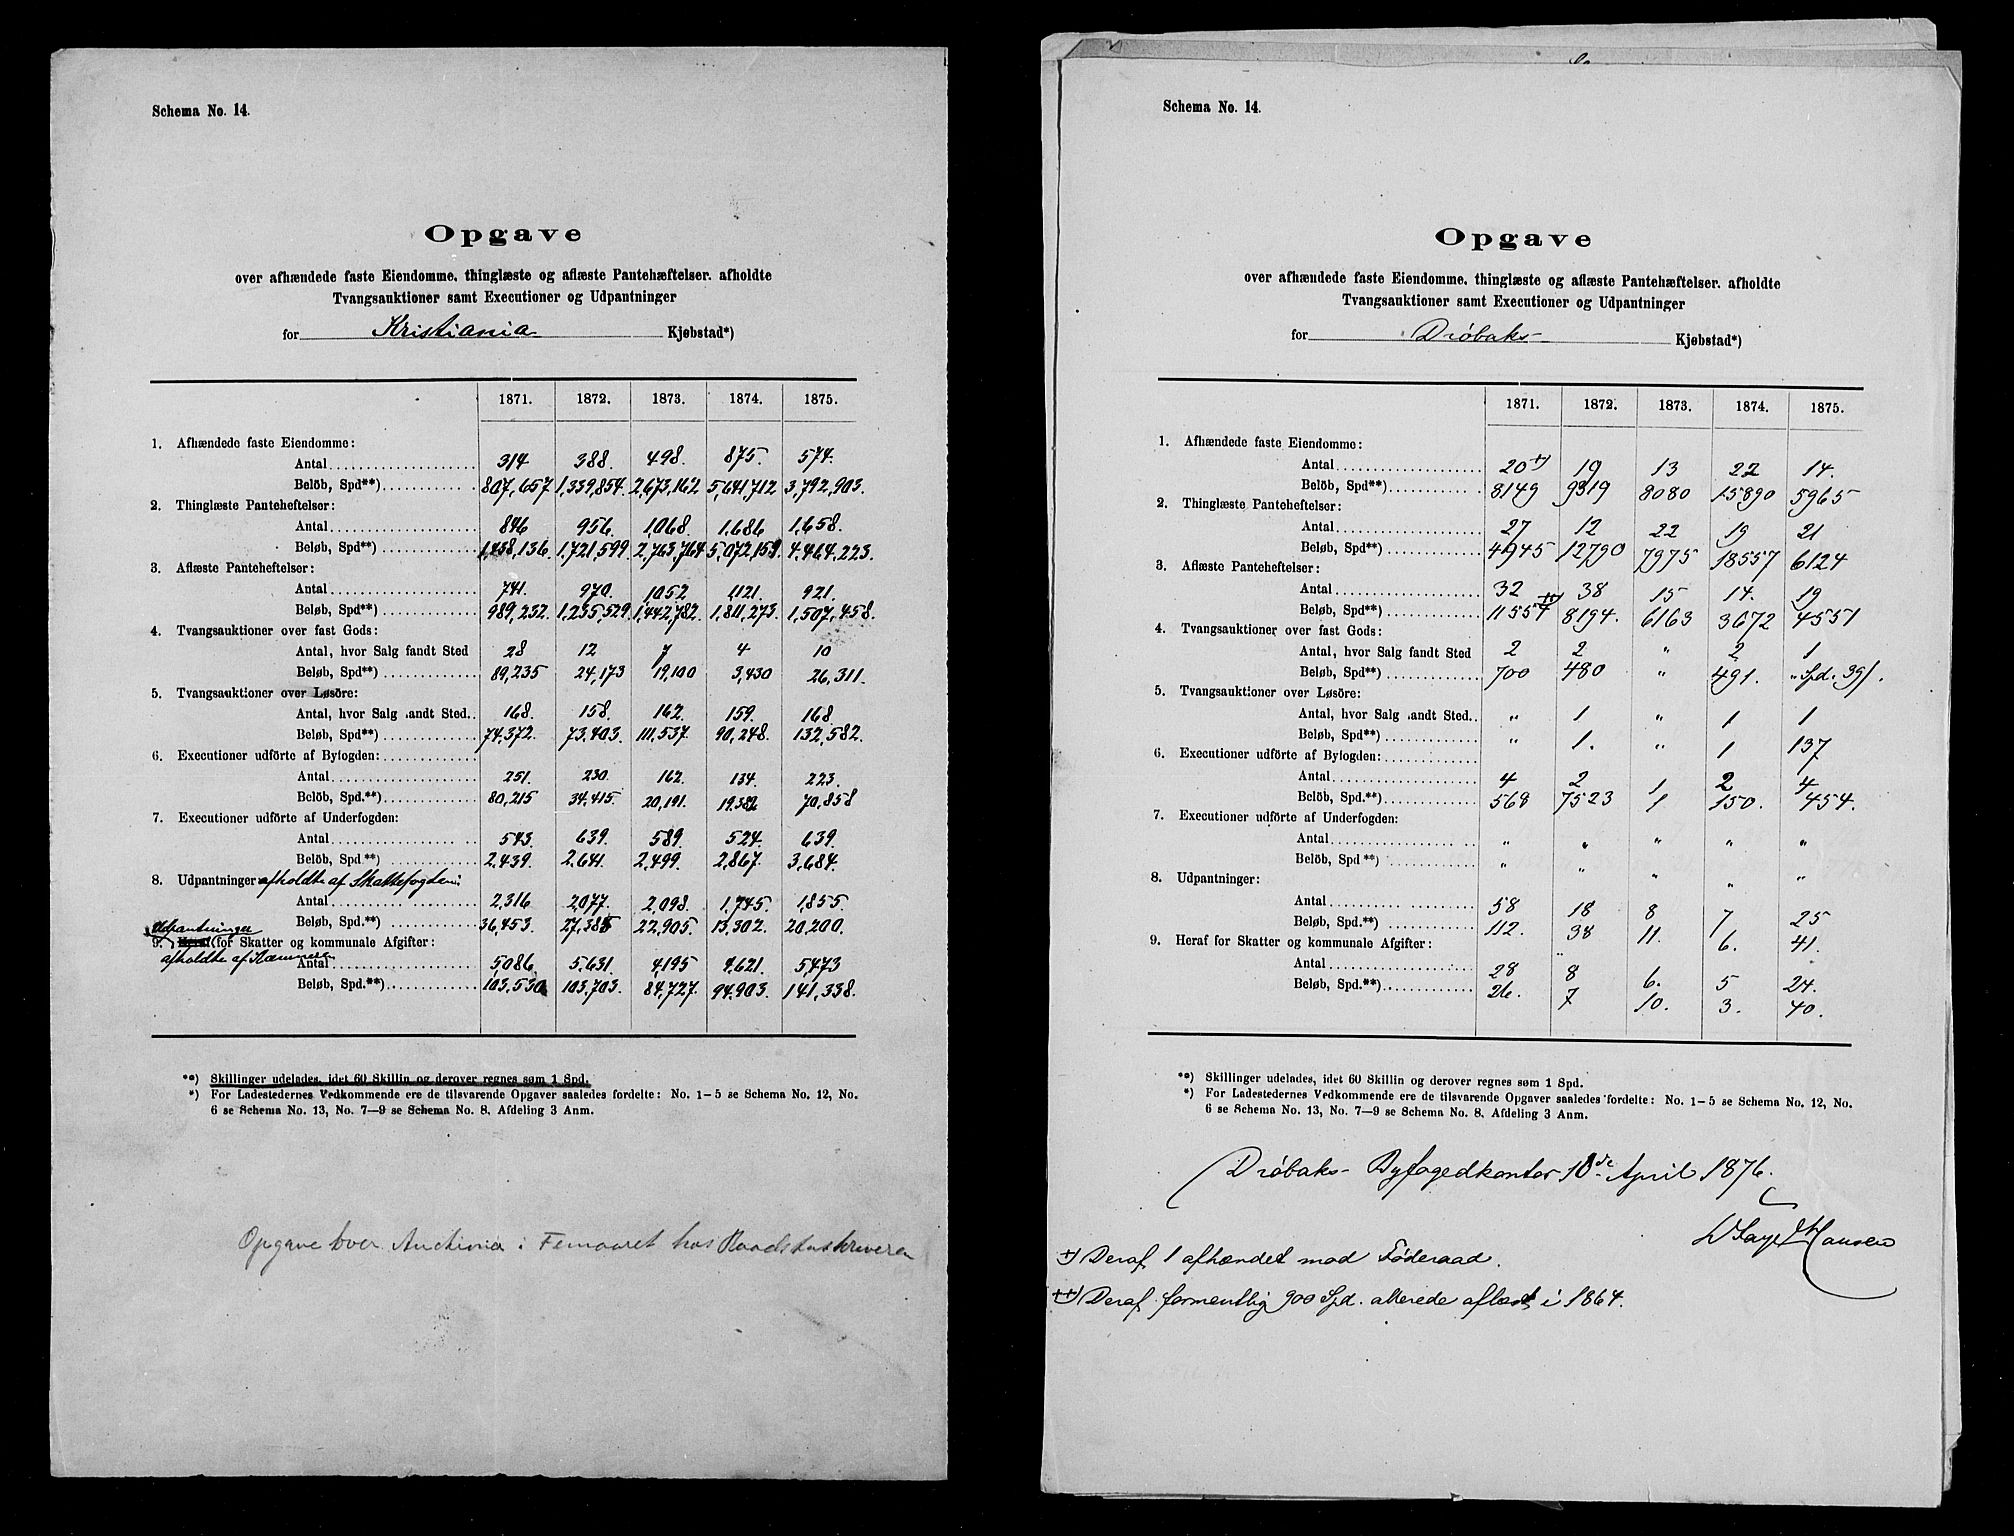 Schema No. 14.
Opgave
over afhændede faste Eiendomme, thinglæste og aflæste Pantehæftelser, afholdte
Tvangsauktioner samt Executioner og Udpantninger
for Kristiania Kjøbstad*)
1871. 1872. 1873. 1874. 1875.
1. Afhændede faste Eiendomme:
Antal 314 388 498 875 574
Beløb, Spd**) 807,657 1,339,854 2,673,162 5,641,712 3,792,903
2. Thinglæste Panteheftelser:
Antal 846 956 1,068 1,686 1,658
Beløb, Spd**) 1,458,136 1,721,599 2,763,764 5,072,159 4,464,223
3. Aflæste Panteheftelser:
Antal 741 970 1052 1,121 921
Beløb, Spd**) 989,232 1,235,529 1,442,782 1,811,273 1,507,458
4. Tvangsauktioner over fast Gods:
Antal, hvor Salg fandt Sted 28 12 7 4 10
Beløb, Spd**) 89,235 24,173 19,100 3,430 26,311
5. Tvangsauktioner over Løsöre:
Antal, hvor Salg fandt Sted 168 158 162 159 168
Beløb, Spd**) 74,372 73,403 111,537 90,248 132,582
6. Executioner udförte af Byfogden:
Antal 251 230 162 134 223
Belöb, Spd.**) 80,215 34,415 20,191 19,382 70,858
7. Executioner udförte af Underfogden:
Antal 543 639 589 524 639
Belöb, Spd**) 2,439 2,641 2,499 2,867 3,684
8. Udpantninger afholdte af Skattefogden:
Antal 2,316 2,077 2,098 1,745 1,855
Beløb, Spd.**) 36,453 27,385 22,905 13,302 20,200
Udpantninger
9. Heraf for Skatter og kommunale Afgifter:
afholdte af Kæmneren
Antal 5,086 5,631 4,195 4,621 5,473
Beløb, Spd.**) 103,530 103,703 84,727 94,903 141,338
**) Skillinger udelades, idet 60 Skillin og derover regnes søm 1 Spd.
*) For Ladestedernes Vedkommende ere de tilsvarende Opgaver saaledes fordelte: No. 1-5 se Schema No. 12, No.
6 se Schema No. 13, No. 7—9 se Schema No. 8, Afdeling 3 Anm.
Opgave over Auctioner i Femaaret hos Raadstuskriveren
Schema No. 14.
Opgave
over afhændede faste Eiendomme, thinglæste og aflæste Pantehæftelser, afholdte
Tvangsauktioner samt Executioner og Udpantninger
for Dröbaks Kjøbstad*)
1871. 1872. 1873. 1874. 1875.
1. Afhændede faste Eiendomme:
Antal 20 +) 19 13 22 14.
Beløb, Spd**) 8149 9319 8080 15890 5965
2. Thinglæste Panteheftelser:
Antal 27 12 22 19 21
Beløb, Spd**) 4945 12790 7975 18557 6124
3. Aflæste Panteheftelser:
Antal 32 38 15 14. 19
Beløb, Spd**) 11557 ++) 8194. 6163 3672 4551
4. Tvangsauktioner over fast Gods:
Antal, hvor Salg fandt Sted 2 2 " 2 1
Beløb, Spd**) 700 480 " 491. " Spd. 39 ß.
5. Tvangsauktioner over Løsöre:
Antal, hvor Salg fandt Sted " 1 " 1 1
Beløb, Spd**) " 1. " 1 137
6. Executioner udförte af Byfogden:
Antal 4 2 1 2 4
Belöb, Spd.**) 568 7523 1 150. 454.
7. Executioner udförte af Underfogden:
Antal " " " " "
Belöb, Spd**) " " " " "
8. Udpantninger:
Antal 58 18 8 7 25
Beløb, Spd.**) 112. 38 11. 6. 41.
9. Heraf for Skatter og kommunale Afgifter:
Antal 28 8 6. 5 24.
Beløb, Spd.**) 26. 7 10. 3. 40.
**) Skillinger udelades, idet 60 Skillin og derover regnes søm 1 Spd.
*) For Ladestedernes Vedkommende ere de tilsvarende Opgaver saaledes fordelte: No. 1-5 se Schema No. 12, No.
6 se Schema No. 13, No. 7—9 se Schema No. 8, Afdeling 3 Anm.
Dröbaks Byfogedkontor 10de April 1876.
Hansen
+) Deraf 1 afhændet mod Föderaad.
++) Deraf formentlig 900 Spd. allerede aflæst i 1864.